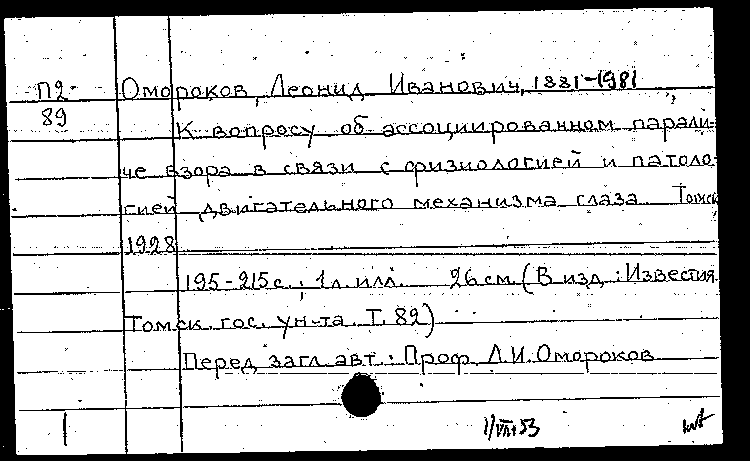 П2- Омороков, Леонид Иванович, 1881-1981
89
К вопросу об ассоциированном парали-
че взора в связи с физиологией и патоло-
гией двигательного механизма глаза. Томск
1928
195-215 с.; 1 л. илл. 26 см. (В изд.: Известия
Томск. гос. ун-та. Т. 89)
Перед загл. авт.: Проф. Л.И. Омороков
1/VII 53